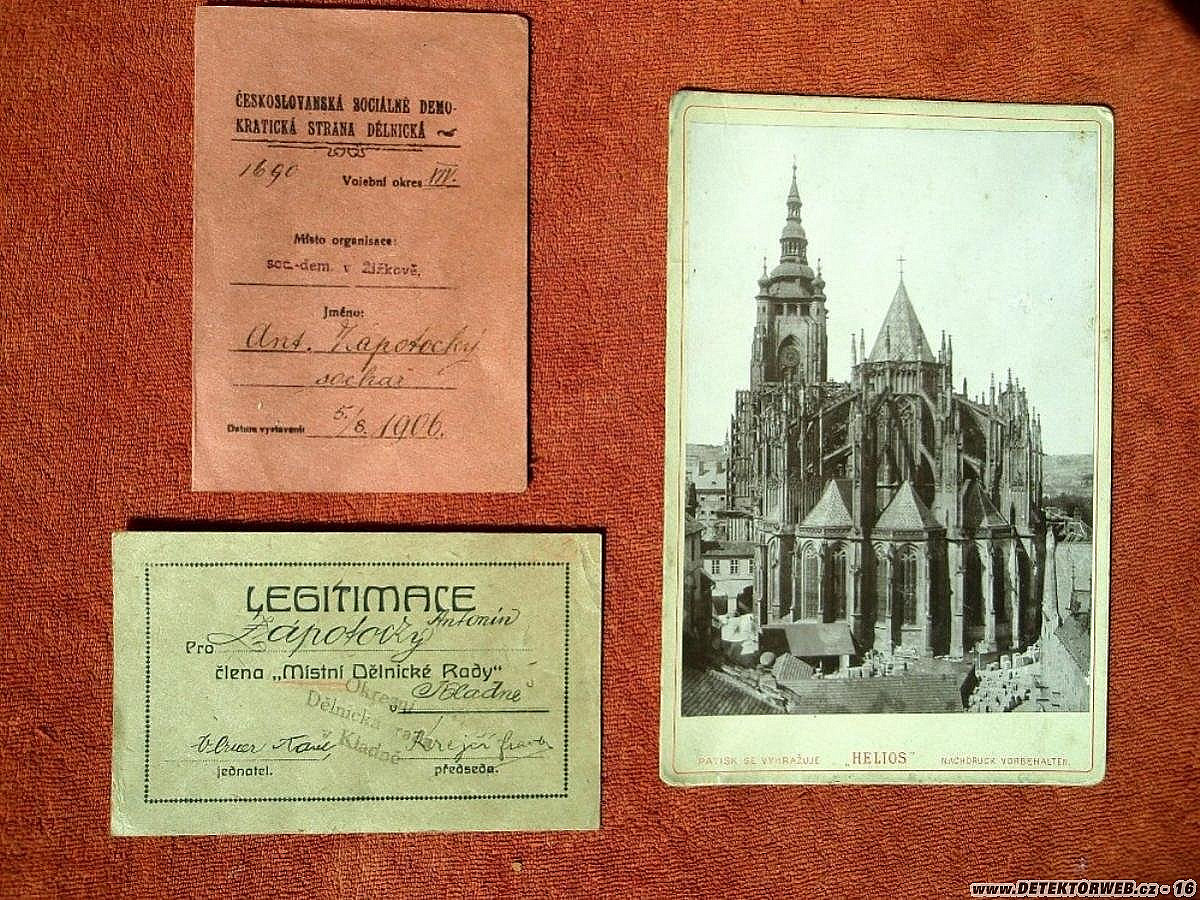 ČESKOSLOVANSKÁ SOCIÁLNĚ DEMO-
KRATICKÁ STRANA DĚLNICKÁ
1690 Volební okres VIV.
Místo organisace:
soc.-dem. v Žižkově,
Jméno:
Ant. Zápotocký
sochař
Datum vystavení: 5/8 1906.
LEGITIMACE
Pro Zápotocký Antonín
člena „Místní Dělnické Rady"
Kladně
Okresní
Dělnická rada
v Kladně
jednatel. předseda.
PATISK SE VYHRAŽUJE „HELIOS" NACHDRUCK VORBEHALTEN.
www.DETEKTORWEB.cz - 16